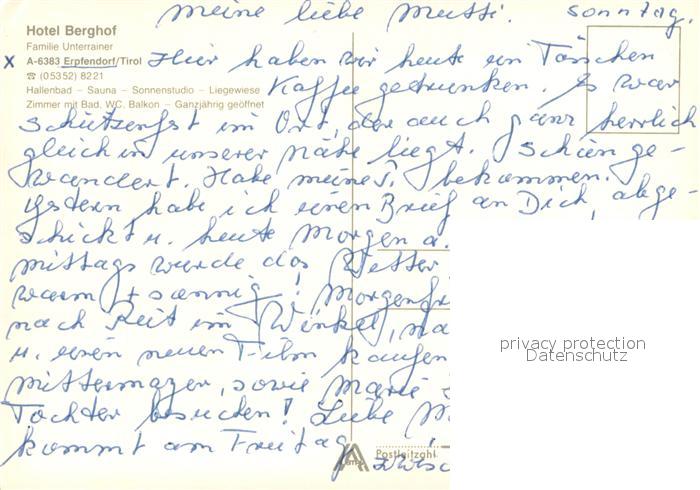 meine liebe Mutti. Sonntag.
Hotel Berghof
Familie Unterrainer
x A-6383 Erpfendorf/Tirol Hier haben wir heute ein Tässchen
☎ (05352) 8221
Hallenbad – Sauna – Sonnenstudio – Liegewiese Kaffee getrunken. Es war
Zimmer mit Bad, WC, Balkon – Ganzjährig geöffnet
Schützenfest im Ort, der auch ganz herrlich
gleich in unserer Nähe liegt. Schön ge-
wandert. Habe meine bekommen.
gestern habe ich einen Brief an Dich, abge-
schickt u. heute Morgen a.
mittags wurde das Wetter
warm + sonnig! Morgen
nach Reit im Winkel,
u. einen neuen Film kaufen
Mittermayer, sowie Marie
Tochter besuchen! Liebe
kommt am Freitag
privacy protection
Datenschutz
Postleitzahl